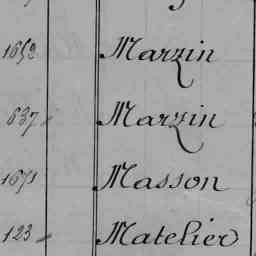 1652 Marzin
637 Marzin
1671 Masson
123 Matelier